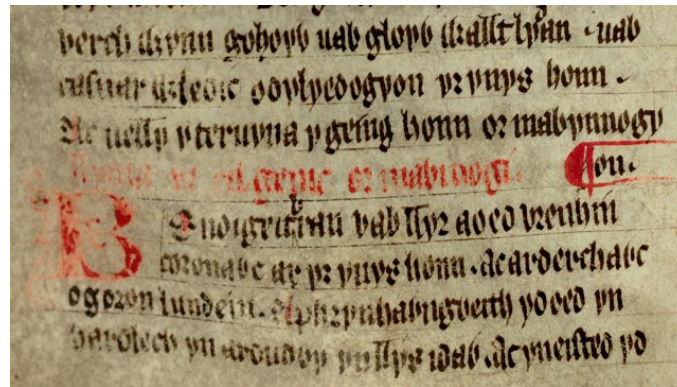 verch wynn gohoyb uab gloyb wallt lydan . uab
casnar wledic o dylyedogyon yr ynys honn .
Ac uelly y teruyna y geing honn or mabynnogy
Llyma yr eil geinc or mabinogi. on.
Bendigeituran uab llyr a oed urenhin
coronabc ar yr ynys honn . ac arderchabc
o goron lundein . A phrynhabngveith yd oed yn
hardlech yn ardudby yn llys idab . Ac yn eisted yd